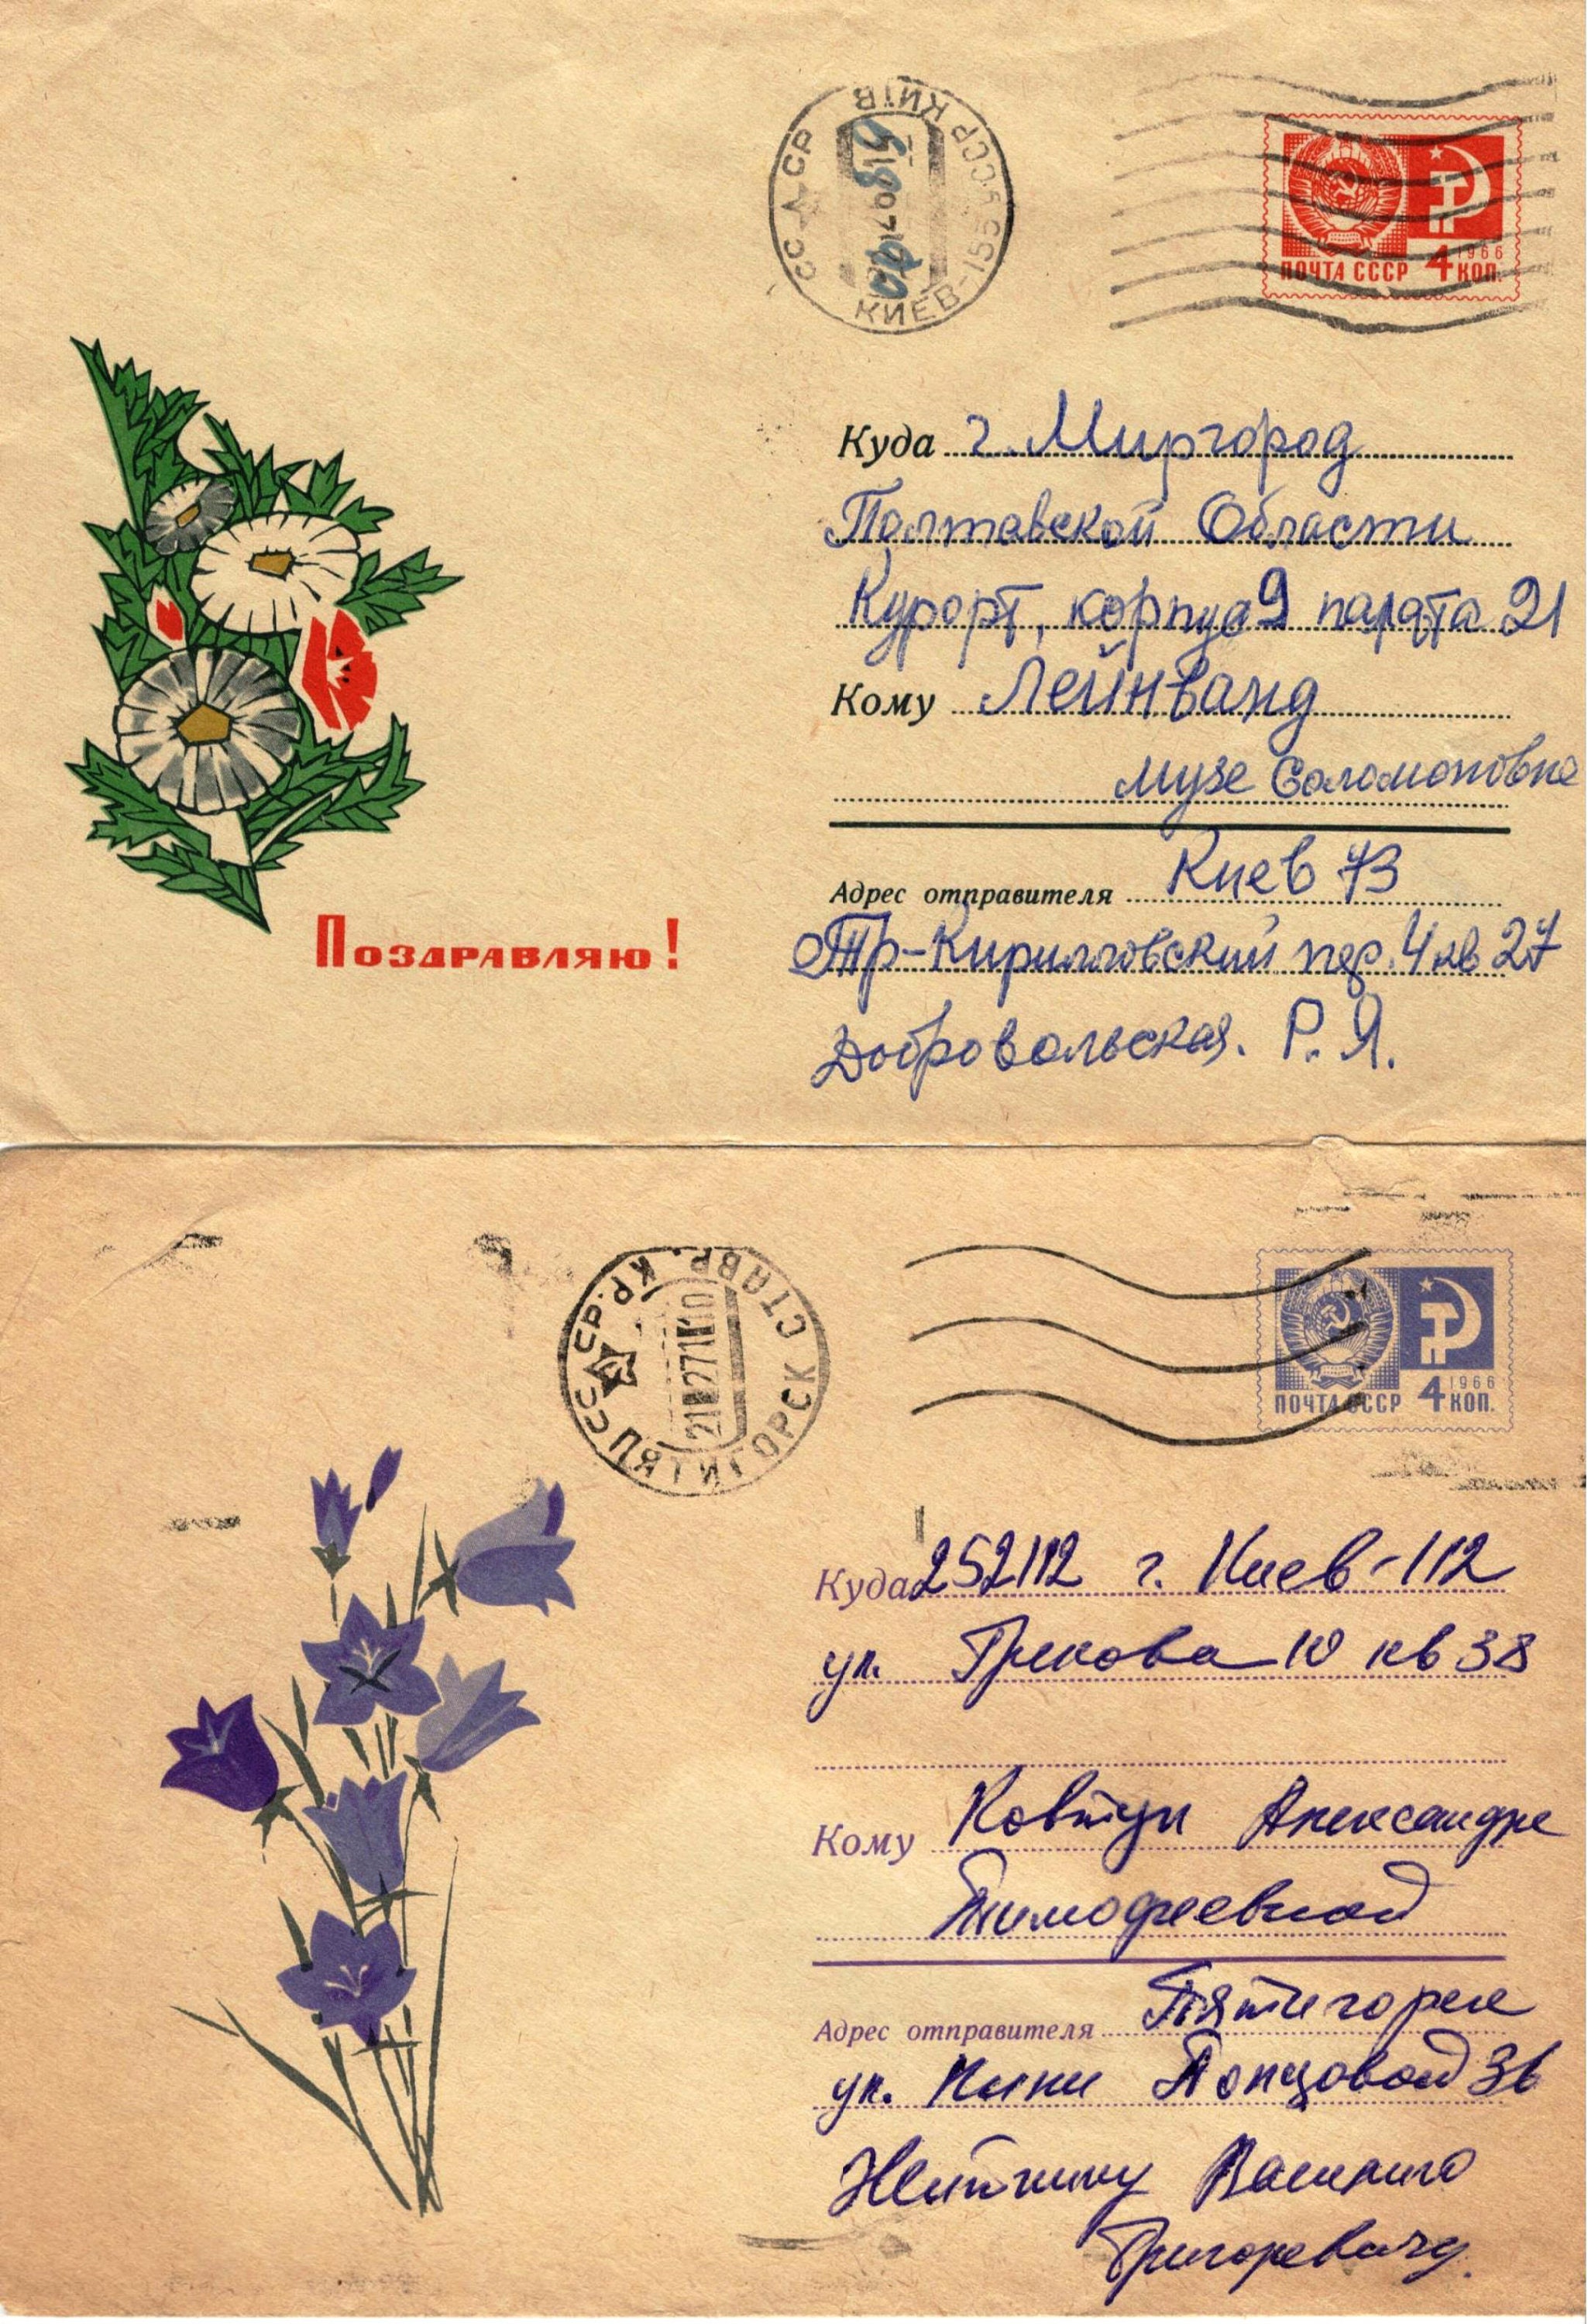 КИЇВ
КИЕВ-155
ПОЧТА СССР 4 КОП. 1966
Куда г. Миргород
Полтавской Области
Курорт, корпус 2 палата 21
Кому Лейнванд
Музе Соломоновне
Адрес отправителя Киев 73
Кирилловский пер. 4 кв 27
Добровольская. Р. Я.
Поздравляю!
СССР ПЯТИГОРСК СТАВР. КР.
ПОЧТА СССР 4 КОП. 1966
Куда 252112 г. Киев-112
ул. Грекова 10 кв 38
Кому Ковтун Александре
Тимофеевной
Адрес отправителя Пятигорск
ул.
Василию
Григоревичу.